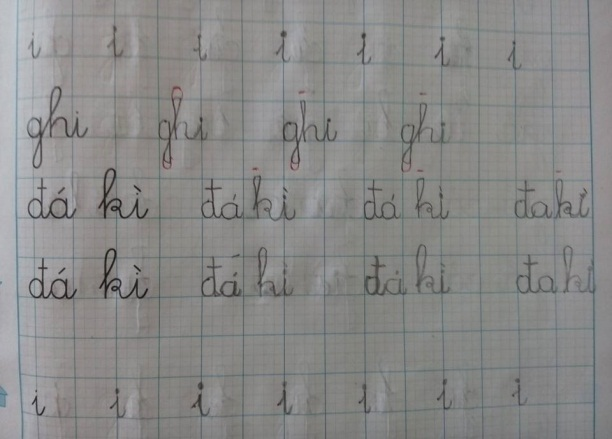 i i i i i i i
ghi ghi ghi ghi
đá kì đá kì đá kì đakì
đá kì đá ki đá ki đaki
i i i i i i i